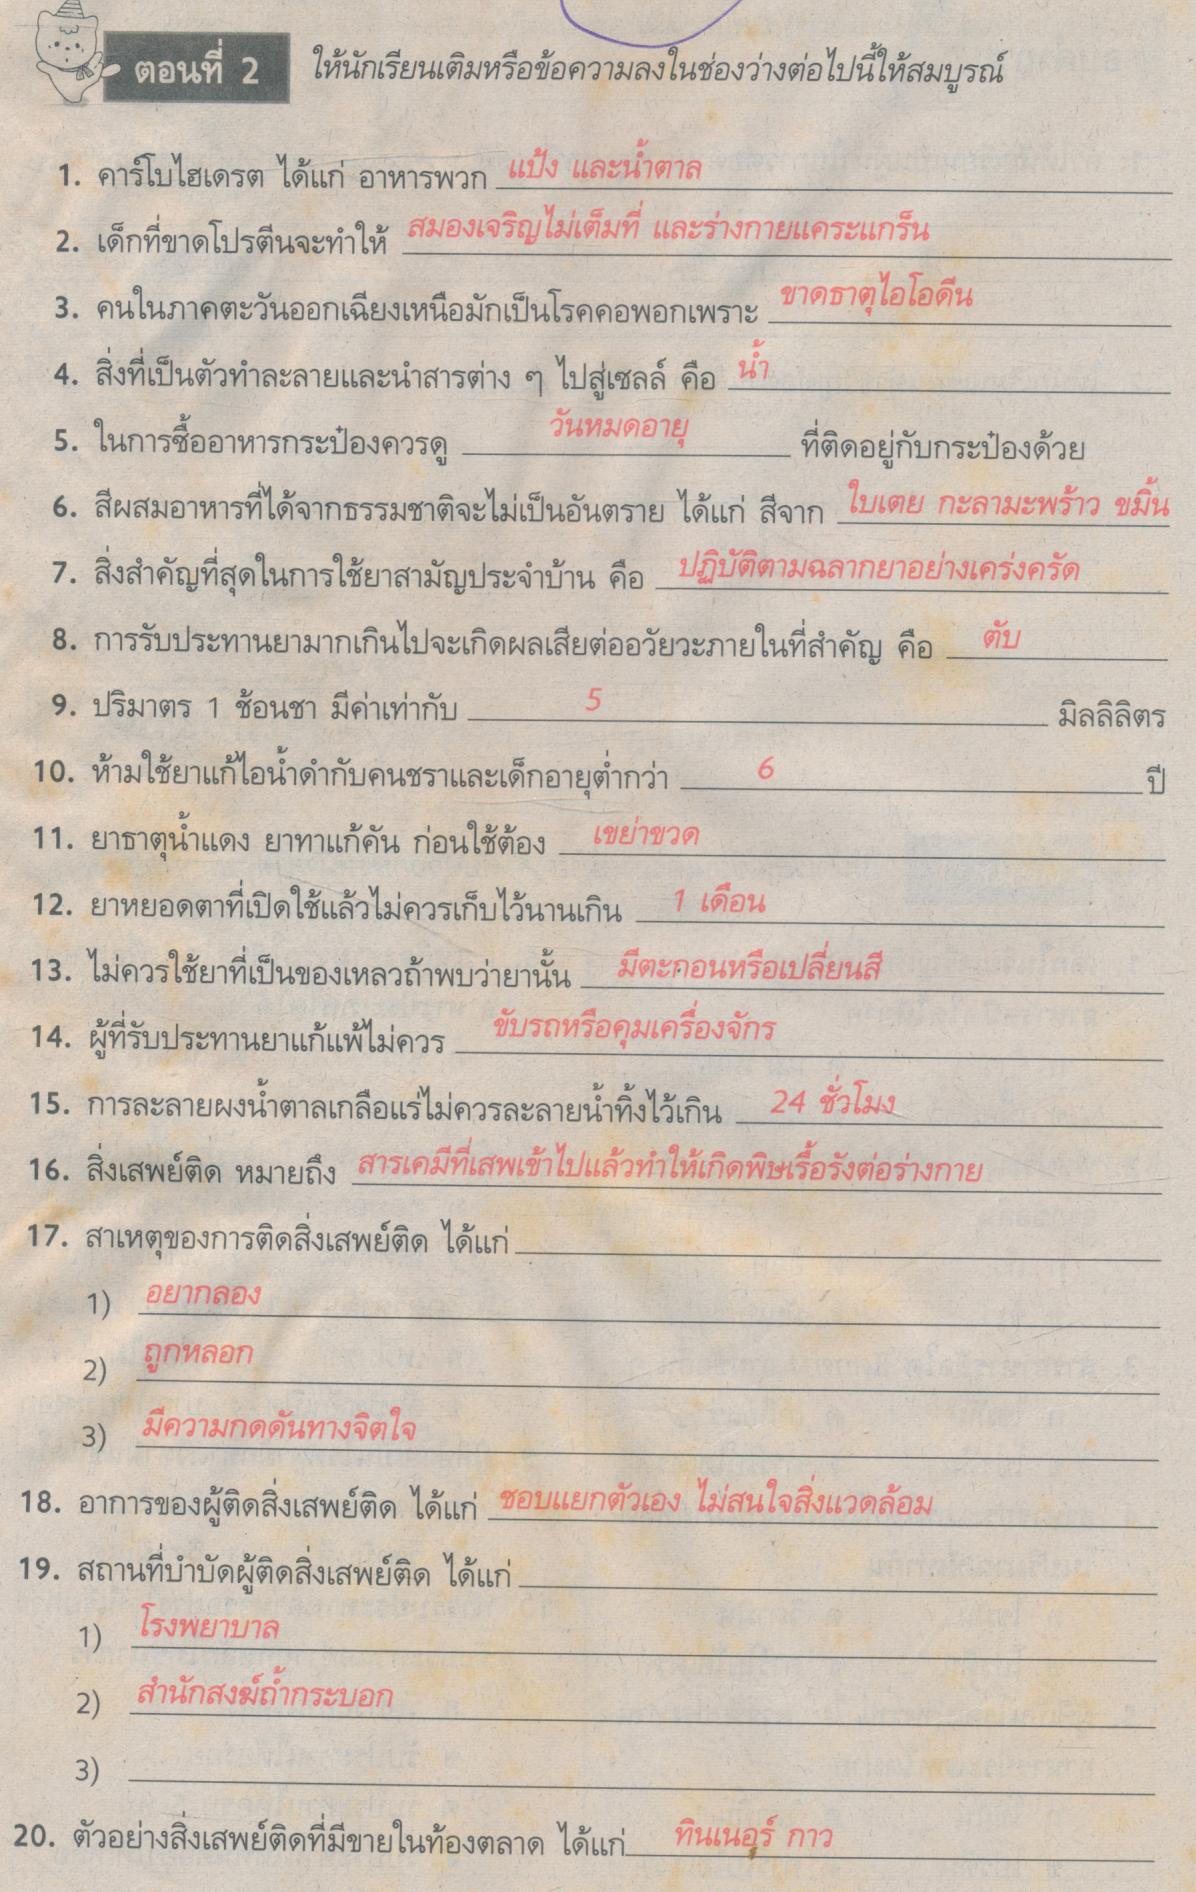 ตอนที่ 2 ให้นักเรียนเติมหรือข้อความลงในช่องว่างต่อไปนี้ให้สมบูรณ์
1. คาร์โบไฮเดรต ได้แก่ อาหารพวก แป้ง และน้ำตาล
2. เด็กที่ขาดโปรตีนจะทำให้ สมองเจริญไม่เต็มที่ และร่างกายแคระแกร็น
3. คนในภาคตะวันออกเฉียงเหนือมักเป็นโรคคอพอกเพราะ ขาดธาตุไอโอดีน
4. สิ่งที่เป็นตัวทำละลายและนำสารต่าง ๆ ไปสู่เซลล์ คือ น้ำ
5. ในการซื้ออาหารกระป๋องควรดู วันหมดอายุ ที่ติดอยู่กับกระป๋องด้วย
6. สีผสมอาหารที่ได้จากธรรมชาติจะไม่เป็นอันตราย ได้แก่ สีจาก ใบเตย กะลามะพร้าว ขมิ้น
7. สิ่งสำคัญที่สุดในการใช้ยาสามัญประจำบ้าน คือ ปฏิบัติตามฉลากยาอย่างเคร่งครัด
8. การรับประทานยามากเกินไปจะเกิดผลเสียต่ออวัยวะภายในที่สำคัญ คือ ตับ
9. ปริมาตร 1 ช้อนชา มีค่าเท่ากับ 5 มิลลิลิตร
10. ห้ามใช้ยาแก้ไอน้ำดำกับคนชราและเด็กอายุต่ำกว่า 6 ปี
11. ยาธาตุน้ำแดง ยาทาแก้คัน ก่อนใช้ต้อง เขย่าขวด
12. ยาหยอดตาที่เปิดใช้แล้วไม่ควรเก็บไว้นานเกิน 1 เดือน
13. ไม่ควรใช้ยาที่เป็นของเหลวถ้าพบว่ายานั้น มีตะกอนหรือเปลี่ยนสี
14. ผู้ที่รับประทานยาแก้แพ้ไม่ควร ขับรถหรือคุมเครื่องจักร
15. การละลายผงน้ำตาลเกลือแร่ไม่ควรละลายน้ำทิ้งไว้เกิน 24 ชั่วโมง
16. สิ่งเสพย์ติด หมายถึง สารเคมีที่เสพเข้าไปแล้วทำให้เกิดพิษเรื้อรังต่อร่างกาย
17. สาเหตุของการติดสิ่งเสพย์ติด ได้แก่
1) อยากลอง
2) ถูกหลอก
3) มีความกดดันทางจิตใจ
18. อาการของผู้ติดสิ่งเสพย์ติด ได้แก่ ชอบแยกตัวเอง ไม่สนใจสิ่งแวดล้อม
19. สถานที่บำบัดผู้ติดสิ่งเสพย์ติด ได้แก่
1) โรงพยาบาล
2) สำนักสงฆ์ถ้ำกระบอก
3)
20. ตัวอย่างสิ่งเสพย์ติดที่มีขายในท้องตลาด ได้แก่ ทินเนอร์ กาว